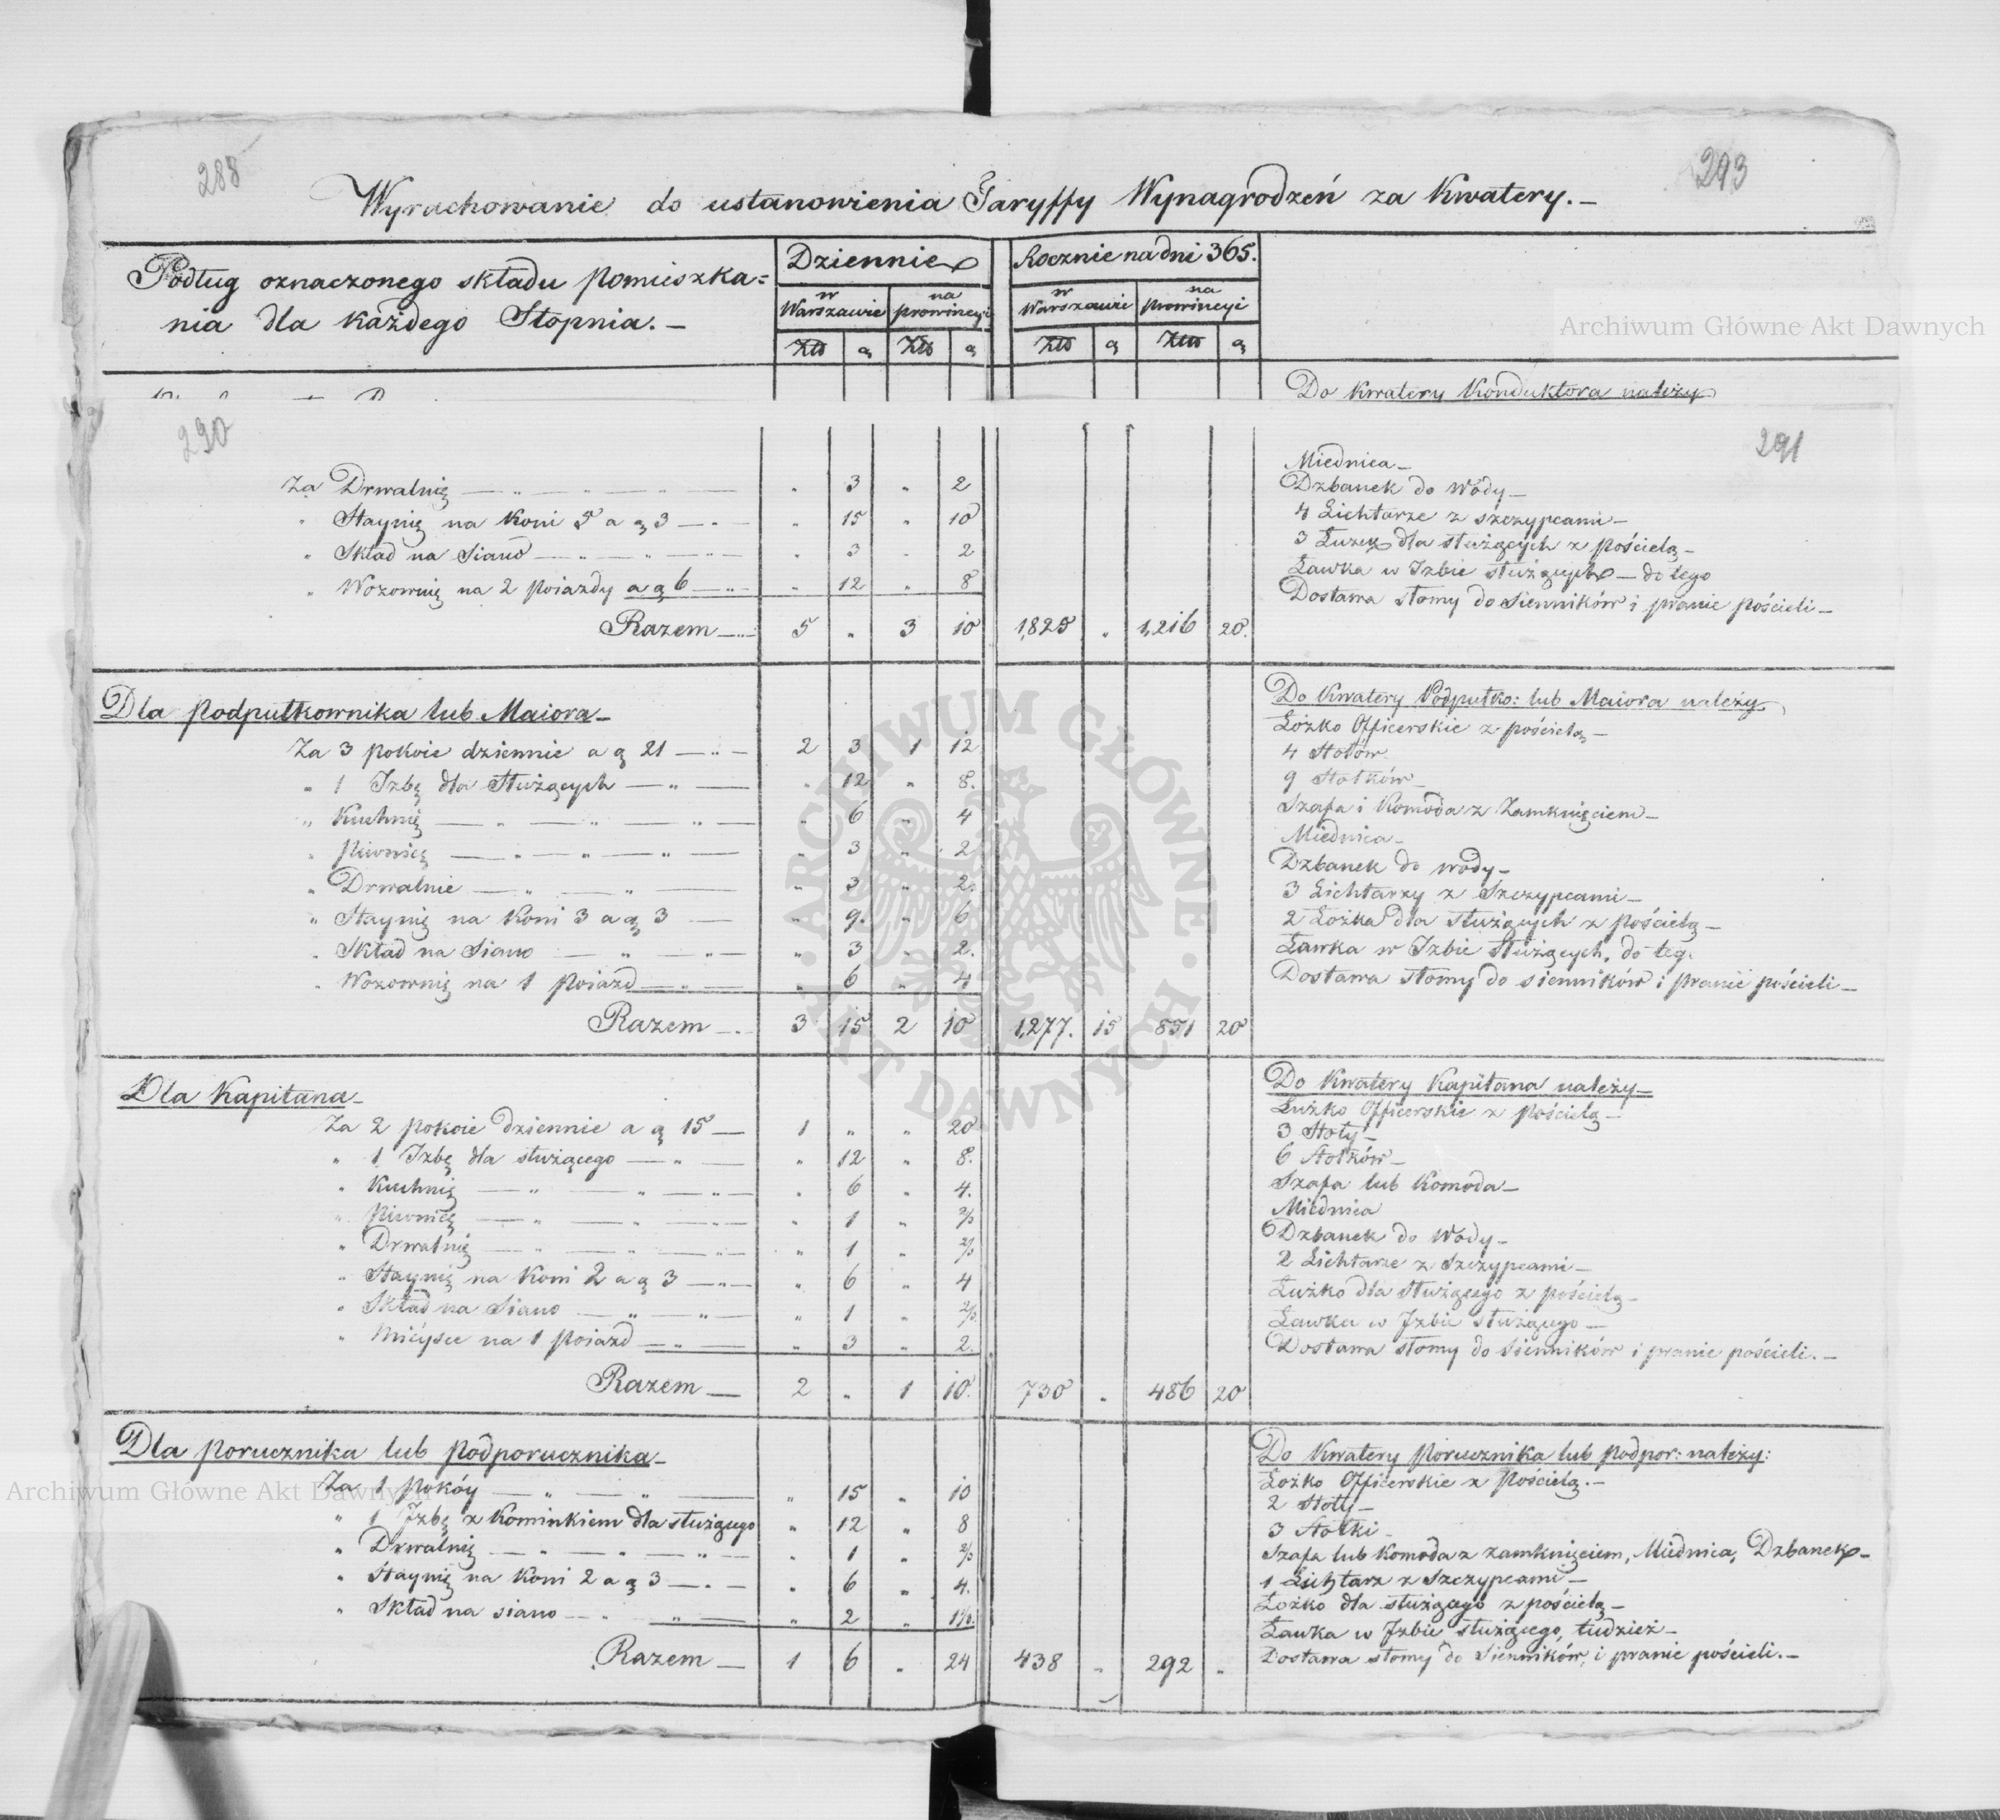 288
293
Wyrachowanie do ustanowienia Taryffy Wynagrodzeń za Kwatery.–
Podług oznaczonego składu pomieszka=
nia dla każdego Stopnia.–
Dziennie
Rocznie na dni 365.
w Warszawie
na prowincyi
w Warszawie
na Prowincyi
Złt g Złt g Złt g Złt g
Do Kwatery Konduktora należy
290
291
Za Drwalnię — „ — „ — „ 3 „ 2
„ Staynię na Koni 5 a g 3 — „ 15 „ 10
„ Skład na Siano — „ — „ 3 „ 2
„ Wozownię na 2 Poiazdy a g 6 — „ 12 „ 8
Razem — 5 „ 3 10 1,825 „ 1,216 20.
Miednica–
Dzbanek do Wody–
4 Lichtarze z szczypcami–
3 Łużek dla służących z Pościelą–
Ławka w Izbie służących – do tego
Dostawa słomy do Sienników i pranie pościeli–
Dla Podpułkownika lub Maiora–
Za 3 pokoie dziennie a g 21 — 2 3 1 12
„ 1 Izbę dla Służących — „ 12 „ 8.
„ Kuchnię — „ 6 „ 4
„ Piwnicę — „ 3 „ 2
„ Drwalnie — „ 3 „ 2.
„ Staynię na Koni 3 a g 3 — „ 9. „ 6
„ Skład na Siano — „ 3 „ 2.
„ Wozownię na 1 Poiazd — „ 6 „ 4
Razem — 3 15 2 10 1,277. 15 851 20
Do Kwatery Podpułko: lub Maiora należy
Łóżko Officerskie z pościelą–
4 Stołów
9 Stołków–
Szafa i Komoda z Zamknięciem–
Miednica–
Dzbanek do wody–
3 Lichtarzy z Szczypcami–
2 Łożka dla służących z pościelą–
Ławka w Izbie Służących, do teg.
Dostawa słomy do sienników i pranie pościeli–
Dla Kapitana–
Za 2 pokoie dziennie a g 15 — 1 „ „ 20
„ 1 Izbę dla służącego — „ 12 „ 8.
„ Kuchnię — „ 6 „ 4.
„ Piwnicę — „ 1 „ 2/3
„ Drwalnię — „ 1 „ 2/3
„ Staynię na Koni 2 a g 3 — „ 6 „ 4
„ Skład na Siano — „ 1 „ 2/3
„ Mieysce na 1 Poiazd — „ 3 „ 2.
Razem — 2 „ 1 10. 730 „ 486 20
Do Kwatery Kapitana należy–
Łużko Officerskie z pościelą–
3 Stoły–
6 Stołków–
Szafa lub Komoda–
Miednica
Dzbanek do Wody–
2 Lichtarze z Szczypcami–
Łużko dla służącego z pościelą–
Ławka w Izbie służącego–
Dostawa słomy do Sienników i pranie pościeli.–
Dla Porucznika lub Podporucznika–
Za 1 Pokóy — „ 15 „ 10
„ 1 Izbę z Kominkiem dla służącego „ 12 „ 8
„ Drwalnię — „ 1 „ 2/3
„ Staynię na Koni 2 a g 3 — „ 6 „ 4.
„ Skład na siano — „ 2 „ 1 1/3.
Razem — 1 6 „ 24 438 „ 292 „
Do Kwatery Porucznika lub Podpor: należy:
Łożko Officerskie z Pościelą.–
2 Stoły–
3 Stołki–
Szafa lub Komoda z zamknięciem, Miednica, Dzbanek–
1 Lichtarz z Szczypcami–
Łożko dla służącego z pościelą–
Ławka w Izbie służącego, tudzież–
Dostawa słomy do Sienników, i pranie pościeli.–
Archiwum Główne Akt Dawnych
Archiwum Główne Akt Dawnych
ARCHIWUM GŁÓWNE AKT DAWNYCH